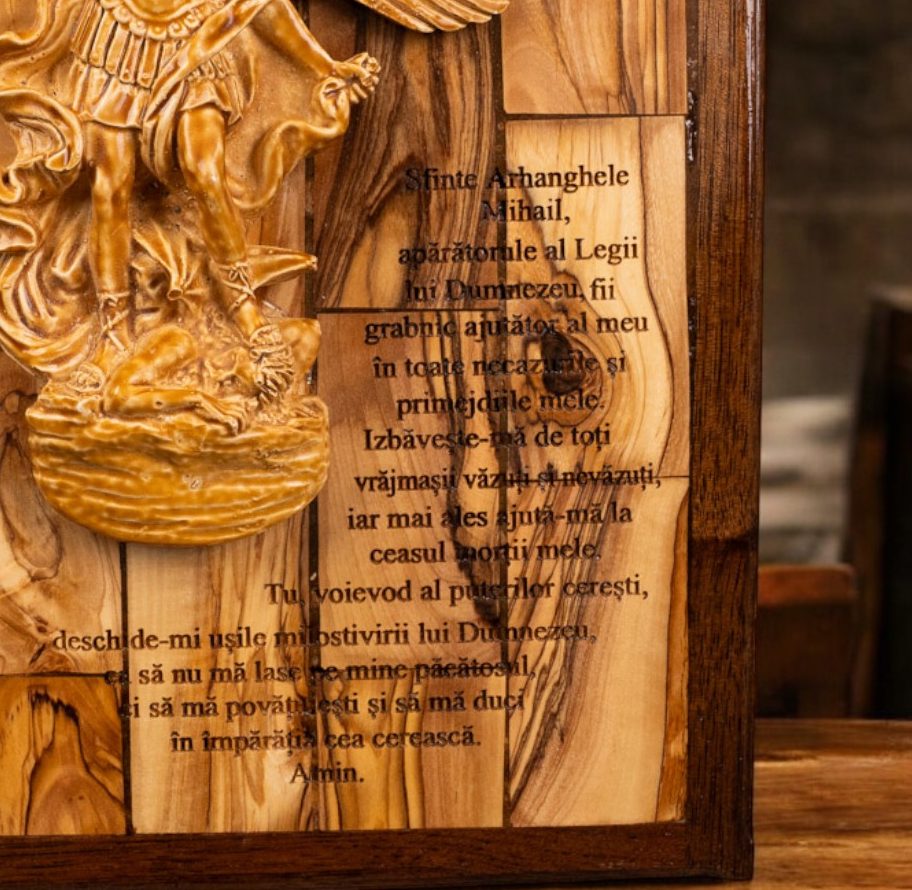 Sfinte Arhanghele
Mihail,
apărătorule al Legii
lui Dumnezeu, fii
grabnic ajutător al meu
în toate necazurile și
primejdiile mele.
Izbăvește-mă de toți
vrăjmașii văzuți și nevăzuți,
iar mai ales ajută-mă la
ceasul morții mele.
Tu, voievod al puterilor cerești,
deschide-mi ușile milostivirii lui Dumnezeu,
ca să nu mă lase pe mine păcătosul,
ci să mă povățuiești și să mă duci
în împărăția cea cerească.
Amin.